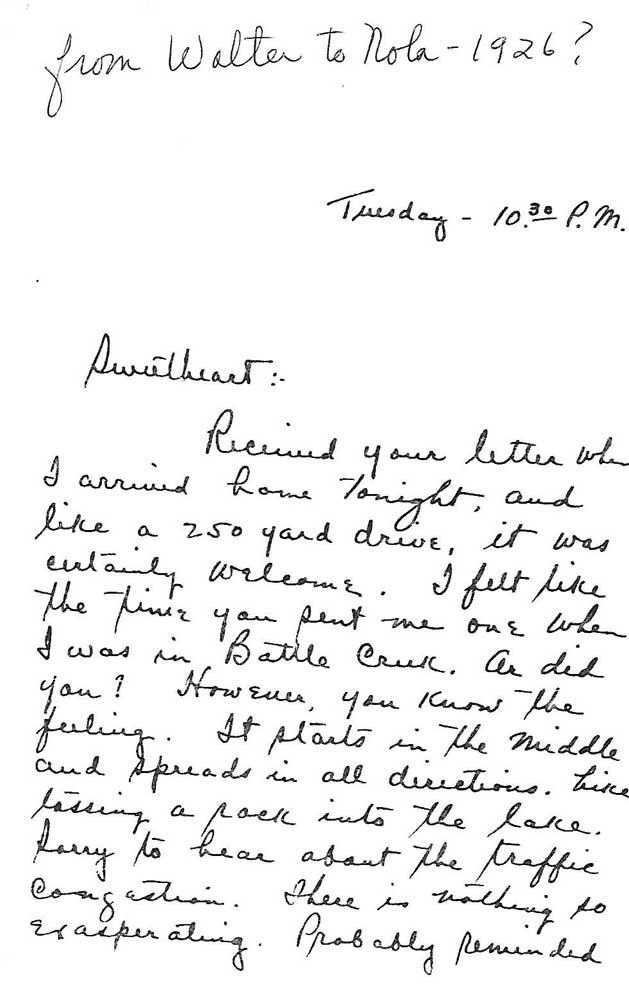 from Walter to Nola - 1926?
Tuesday - 10.30 P.M.
Sweetheart:-
Received your letter when
I arrived home tonight, and
like a 250 yard drive, it was
certainly welcome. I felt like
the time you sent me one when
I was in Battle Creek. Or did
you? However, you know the
feeling. It starts in the middle
and spreads in all directions. Like
tossing a rock into the lake.
Sorry to hear about the traffic
congastion. There is nothing so
exasperating. Probably reminded